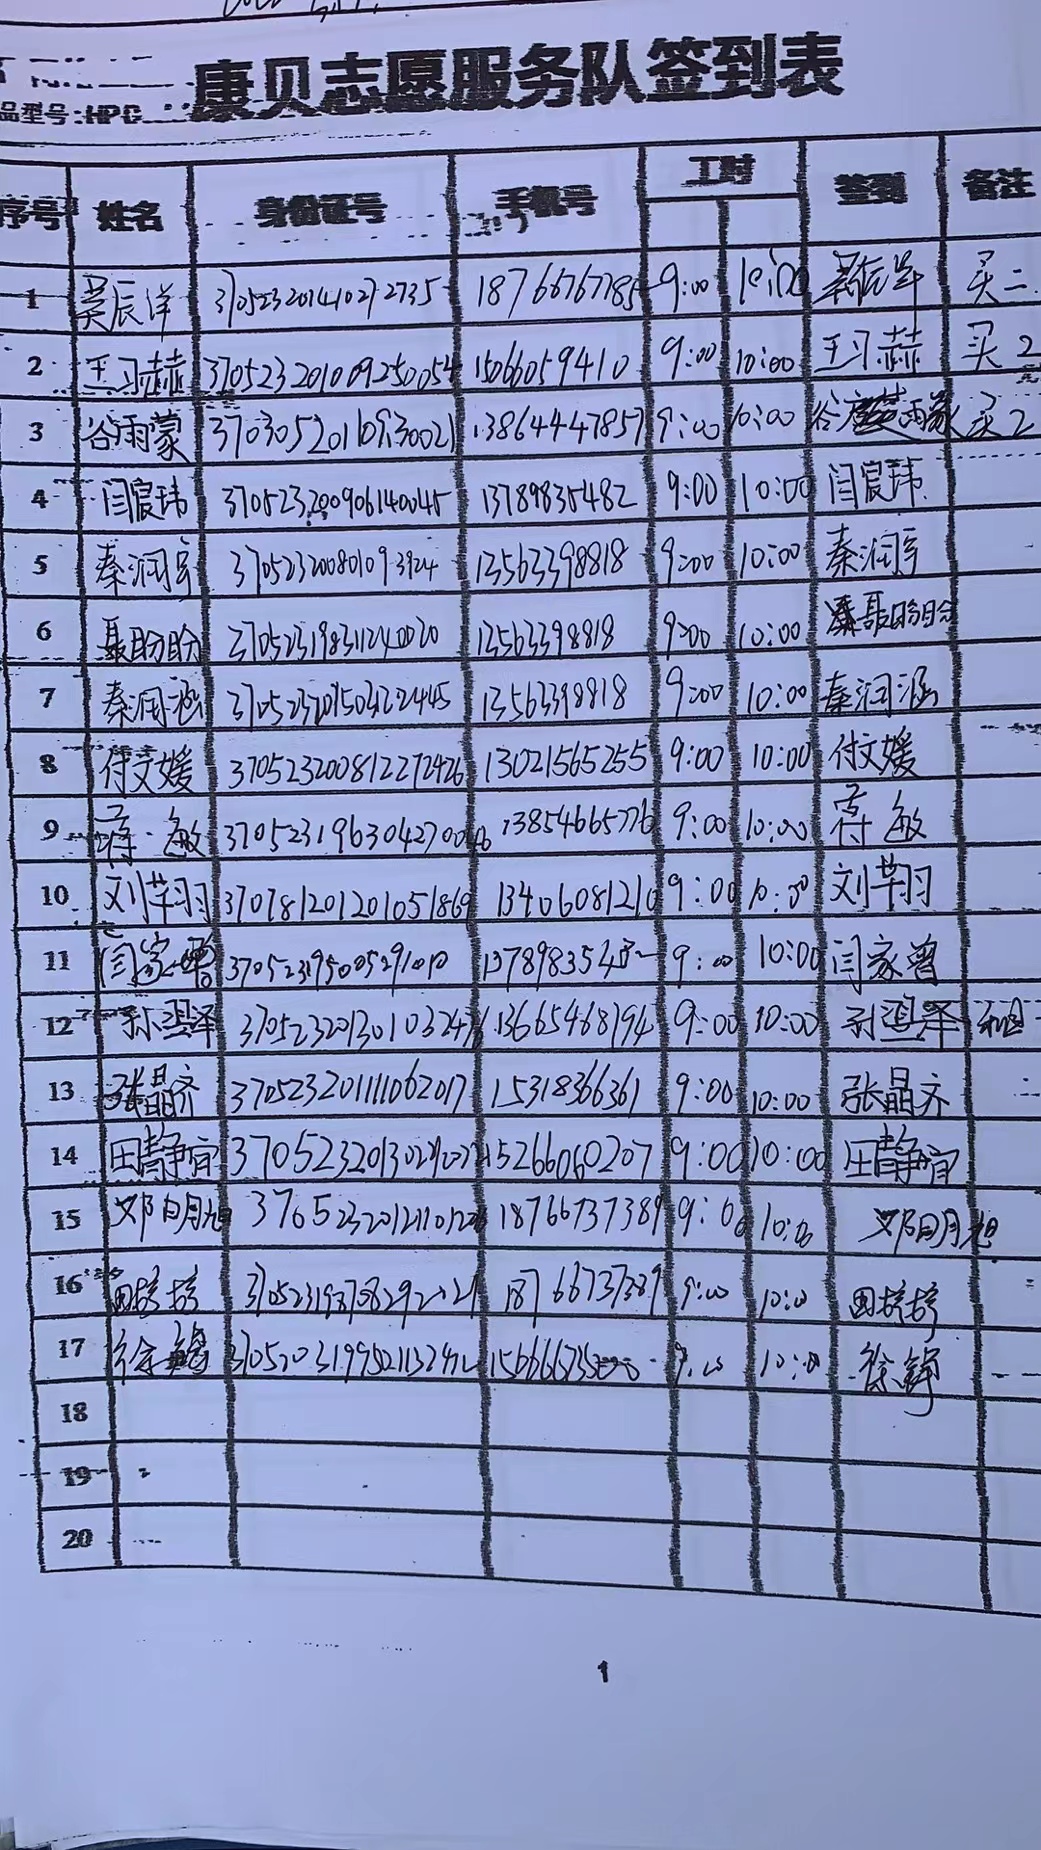 康贝志愿服务队签到表
品型号:HPG
序号 姓名 身份证号 手机号 工时 签到 备注
1 辰洋 370523201410272735 18766767785 9:00 10:00 买二
2 王习赫 370523201009250054 15066059410 9:00 10:00 王习赫 买2
3 谷雨蒙 13864447857 9:00 10:00 买2
4 闫宸玮 370523200906140045 13789835482 9:00 10:00 闫宸玮
5 秦润宇 370523200801093924 13563398818 9:00 10:00 秦润宇
6 聂盼盼 370523198311240020 13563398818 9:00 10:00 聂盼盼
7 秦润涵 13563398818 9:00 10:00 秦润涵
8 付文媛 370523200812272426 13021565255 9:00 10:00 付文媛
9 蒋敏 13854665776 9:00 10:00 蒋敏
10 刘芊羽 370781201201051869 13406081210 9:00 10:00 刘芊羽
11 闫家曾 9:00 10:00 闫家曾
12 孙湿泽 13665468194 9:00 10:00
13 张晶齐 370523201111062017 15318366361 9:00 10:00 张晶齐
14 田静宜 15266060207 9:00 10:00 田静宜
15 邓明旭 18766737389 9:00 10:00 邓明旭
16 田婷婷 18766737389 9:00 10:00 田婷婷
17 徐 9:00 10:00 徐
18
19
20
1